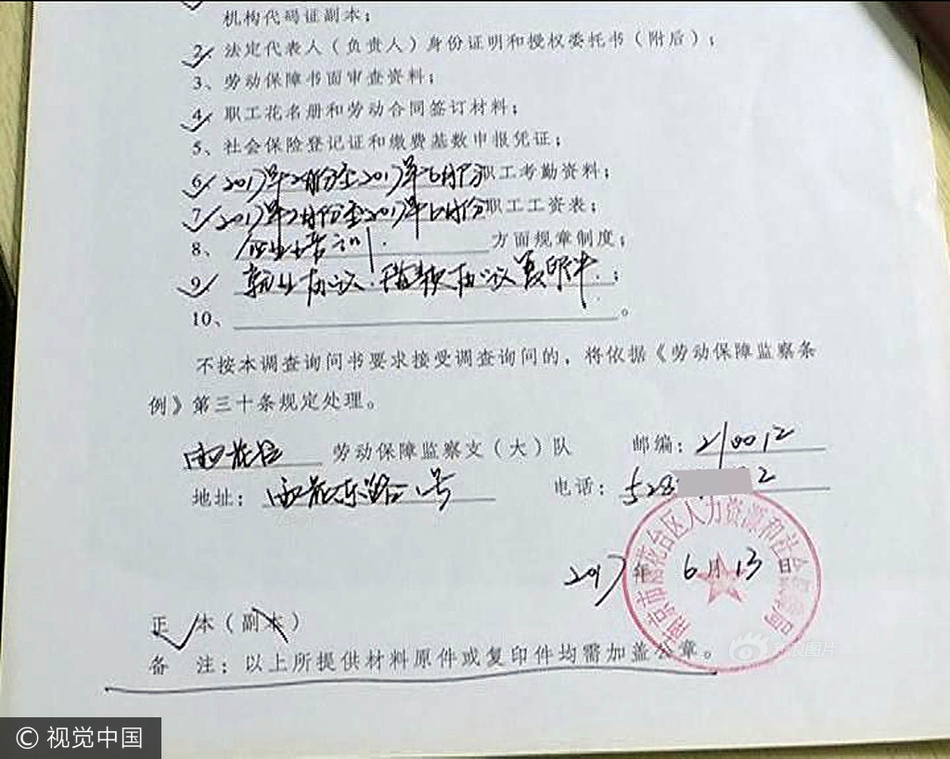 机构代码证副本；
2、法定代表人（负责人）身份证明和授权委托书（附后）；
3、劳动保障书面审查资料；
4、职工花名册和劳动合同签订材料；
5、社会保险登记证和缴费基数申报凭证；
6、2017年2月份至2017年6月份职工考勤资料；
7、2017年2月份至2017年6月份职工工资表；
8、企业培训．方面规章制度；
9、就业协议．协议复印件．；
10、。
不按本调查询问书要求接受调查询问的，将依据《劳动保障监察条
例》第三十条规定处理。
雨花台 劳动保障监察支（大）队 邮编：210012
地址：雨花东路 号 电话：528 2
南京市雨花台区人力资源和社会保障局
2017年6月13日
正 本（副本）
备 注：以上所提供材料原件或复印件均需加盖公章。
© 视觉中国